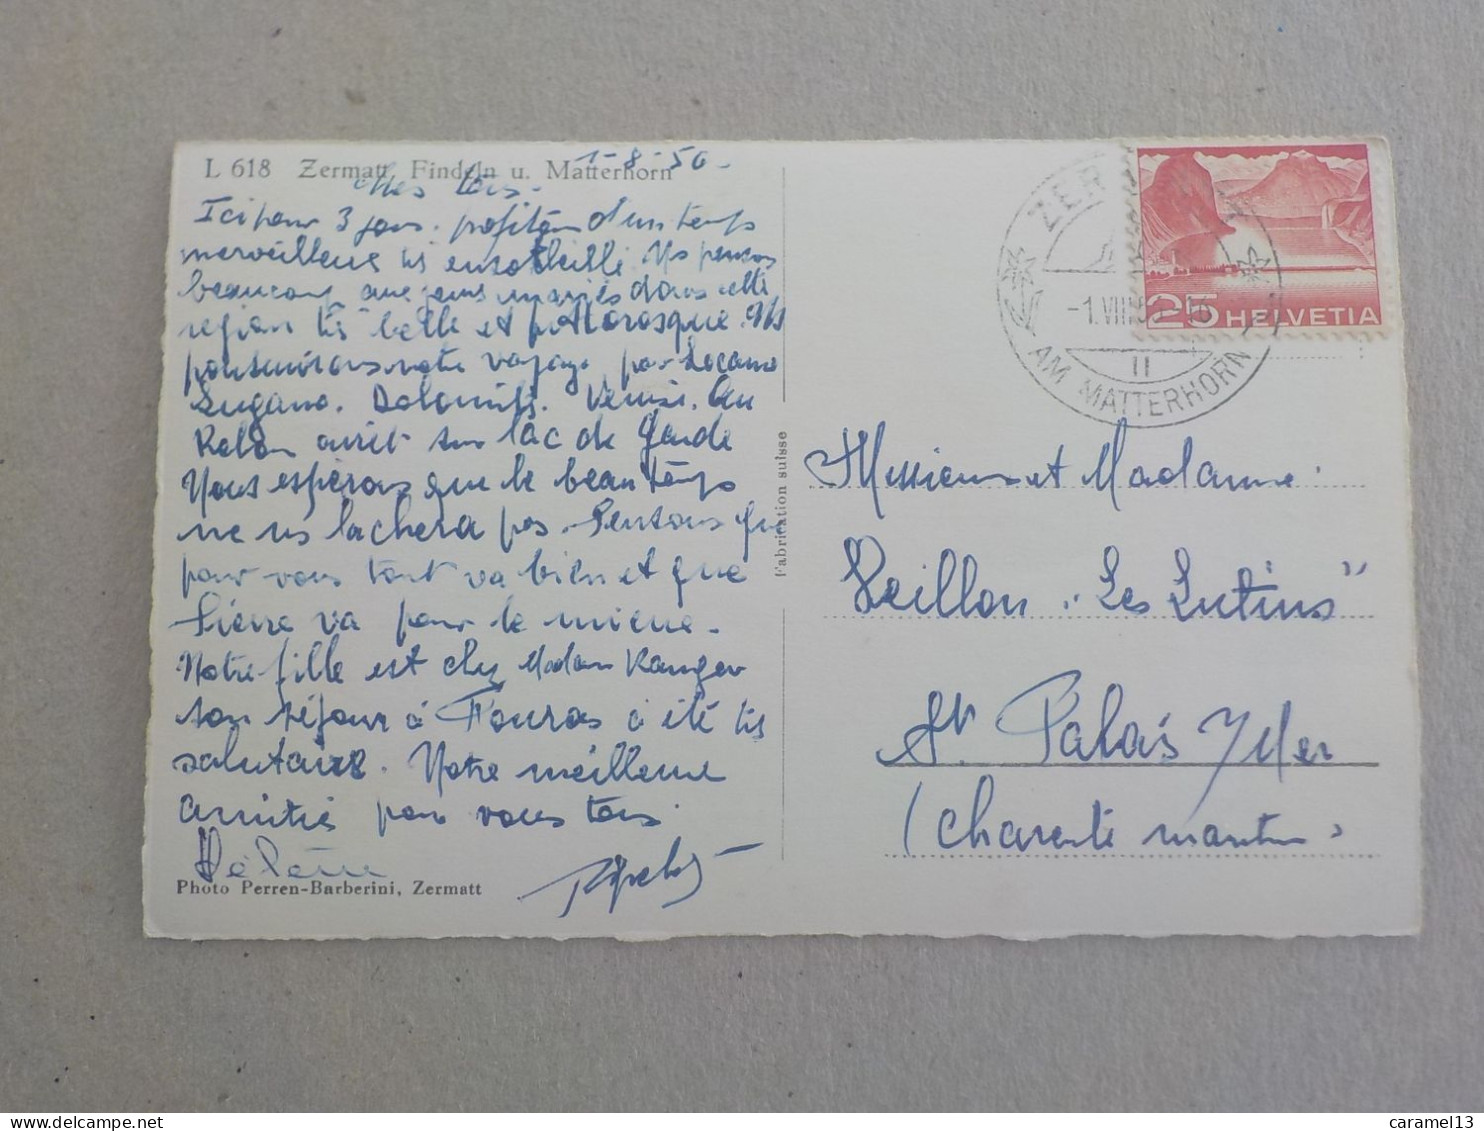 L 618 Zermatt, Findeln u. Matterhorn
1-8-50-
Ici pour 3 jours. profitons d'un temps
merveilleux ts ensoleillé. Ns pensons
beaucoup aux jeunes mariés dans cette
région ts belle et pittoresque. Ns
poursuivrons notre voyage par Locarno
Lugano. Dolomites. Venise. Au
arrêt sur lac de Garde
Nous espérons que le beau temps
ne ns lachera pas. Pensons que
pour vous tout va bien et que
Pierre va pour le mieux.
Notre fille est chez Madame
son séjour à Fouras a été ts
salutaire. Notre meilleure
amitié pour vous tous.
Hélène
Photo Perren-Barberini, Zermatt
Fabrication suisse
ZER
-1.VIII.
II
AM MATTERHORN
25 HELVETIA
Messieurs et Madame
Veillon "Les Lutins"
St. Palais s/Mer
(Charente maritime)
caramel13